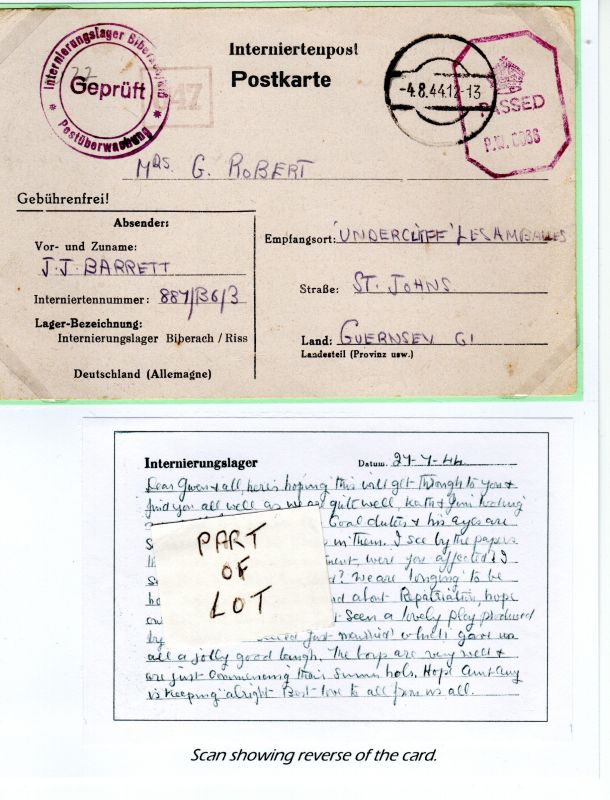 Internierungslager Biberach/Riß
Geprüft
Postüberwachung
22
647
Interniertenpost
Postkarte
-4.8.44.12-13
PASSED
P.W.
MRS G. ROBERT
Gebührenfrei!
Absender:
Vor- und Zuname:
J.J. BARRETT
Interniertennummer: 887/B6/3
Lager-Bezeichnung:
Internierungslager Biberach / Riss
Deutschland (Allemagne)
Empfangsort: 'UNDERCLIFF' LES AMBALLES
Straße: ST. JOHNS
Land: GUERNSEY CI
Landesteil (Provinz usw.)
Internierungslager Datum. 27-7-44
Dear Gwen & all, here's hoping this will get through to you &
find you all well as we are quite well, Kath & Jimi looking
Coal duties & his eyes are
in them. I see by the papers
ment, were you affected? I
d? We are longing to be
about Repatriation, hope
Seen a lovely play produced
by just married which gave us
all a jolly good laugh. The boys are very well &
are just commencing their Summ hols. Hope Aunt Amy
is keeping alright Best love to all from us all.
PART
OF
LOT
Scan showing reverse of the card.